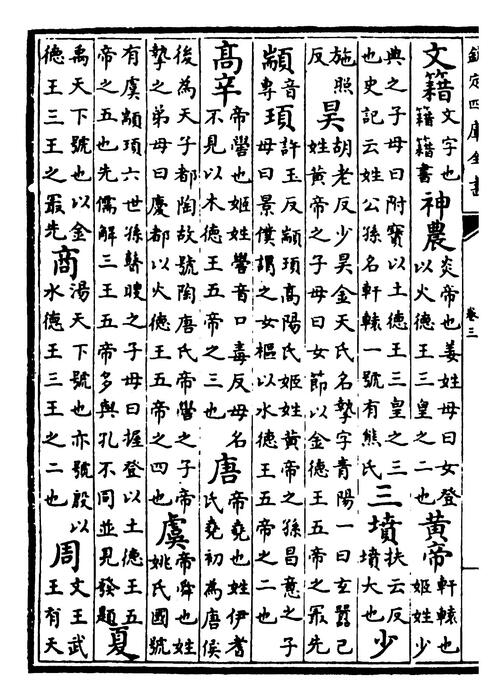 欽定四庫全書
卷三
文籍文字也籍籍書神農炎帝也姜姓母曰女登以火德王三皇之二也黄帝軒轅也姬姓少
典之子母曰附寳以土德王三皇之三也史記云姓公孫名軒轅一號有熊氏三墳扶云反墳大也少
施照反昊胡老反少昊金天氏名摯字青陽一曰玄囂己姓黄帝之子母曰女節以金德王五帝之冣先
顓音專頊許玉反顓頊高陽氏姬姓黄帝之孫昌意之子母曰景僕謂之女樞以水德王五帝之二也
高辛帝嚳也姬姓嚳音口毒反母名不見以木德王五帝之三也唐帝堯也姓伊耆氏堯初為唐侯
後為天子都陶故號陶唐氏帝嚳之子帝摯之弟母曰慶都以火德王五帝之四也虞帝舜也姓姚氏國號
有虞顓頊六世孫瞽瞍之子母曰握登以土德王五帝之五也先儒解三王五帝多與孔不同並見發題夏
禹天下號也以金德王三王之冣先商湯天下號也亦號殷以水德王三王之二也周文王武王有天